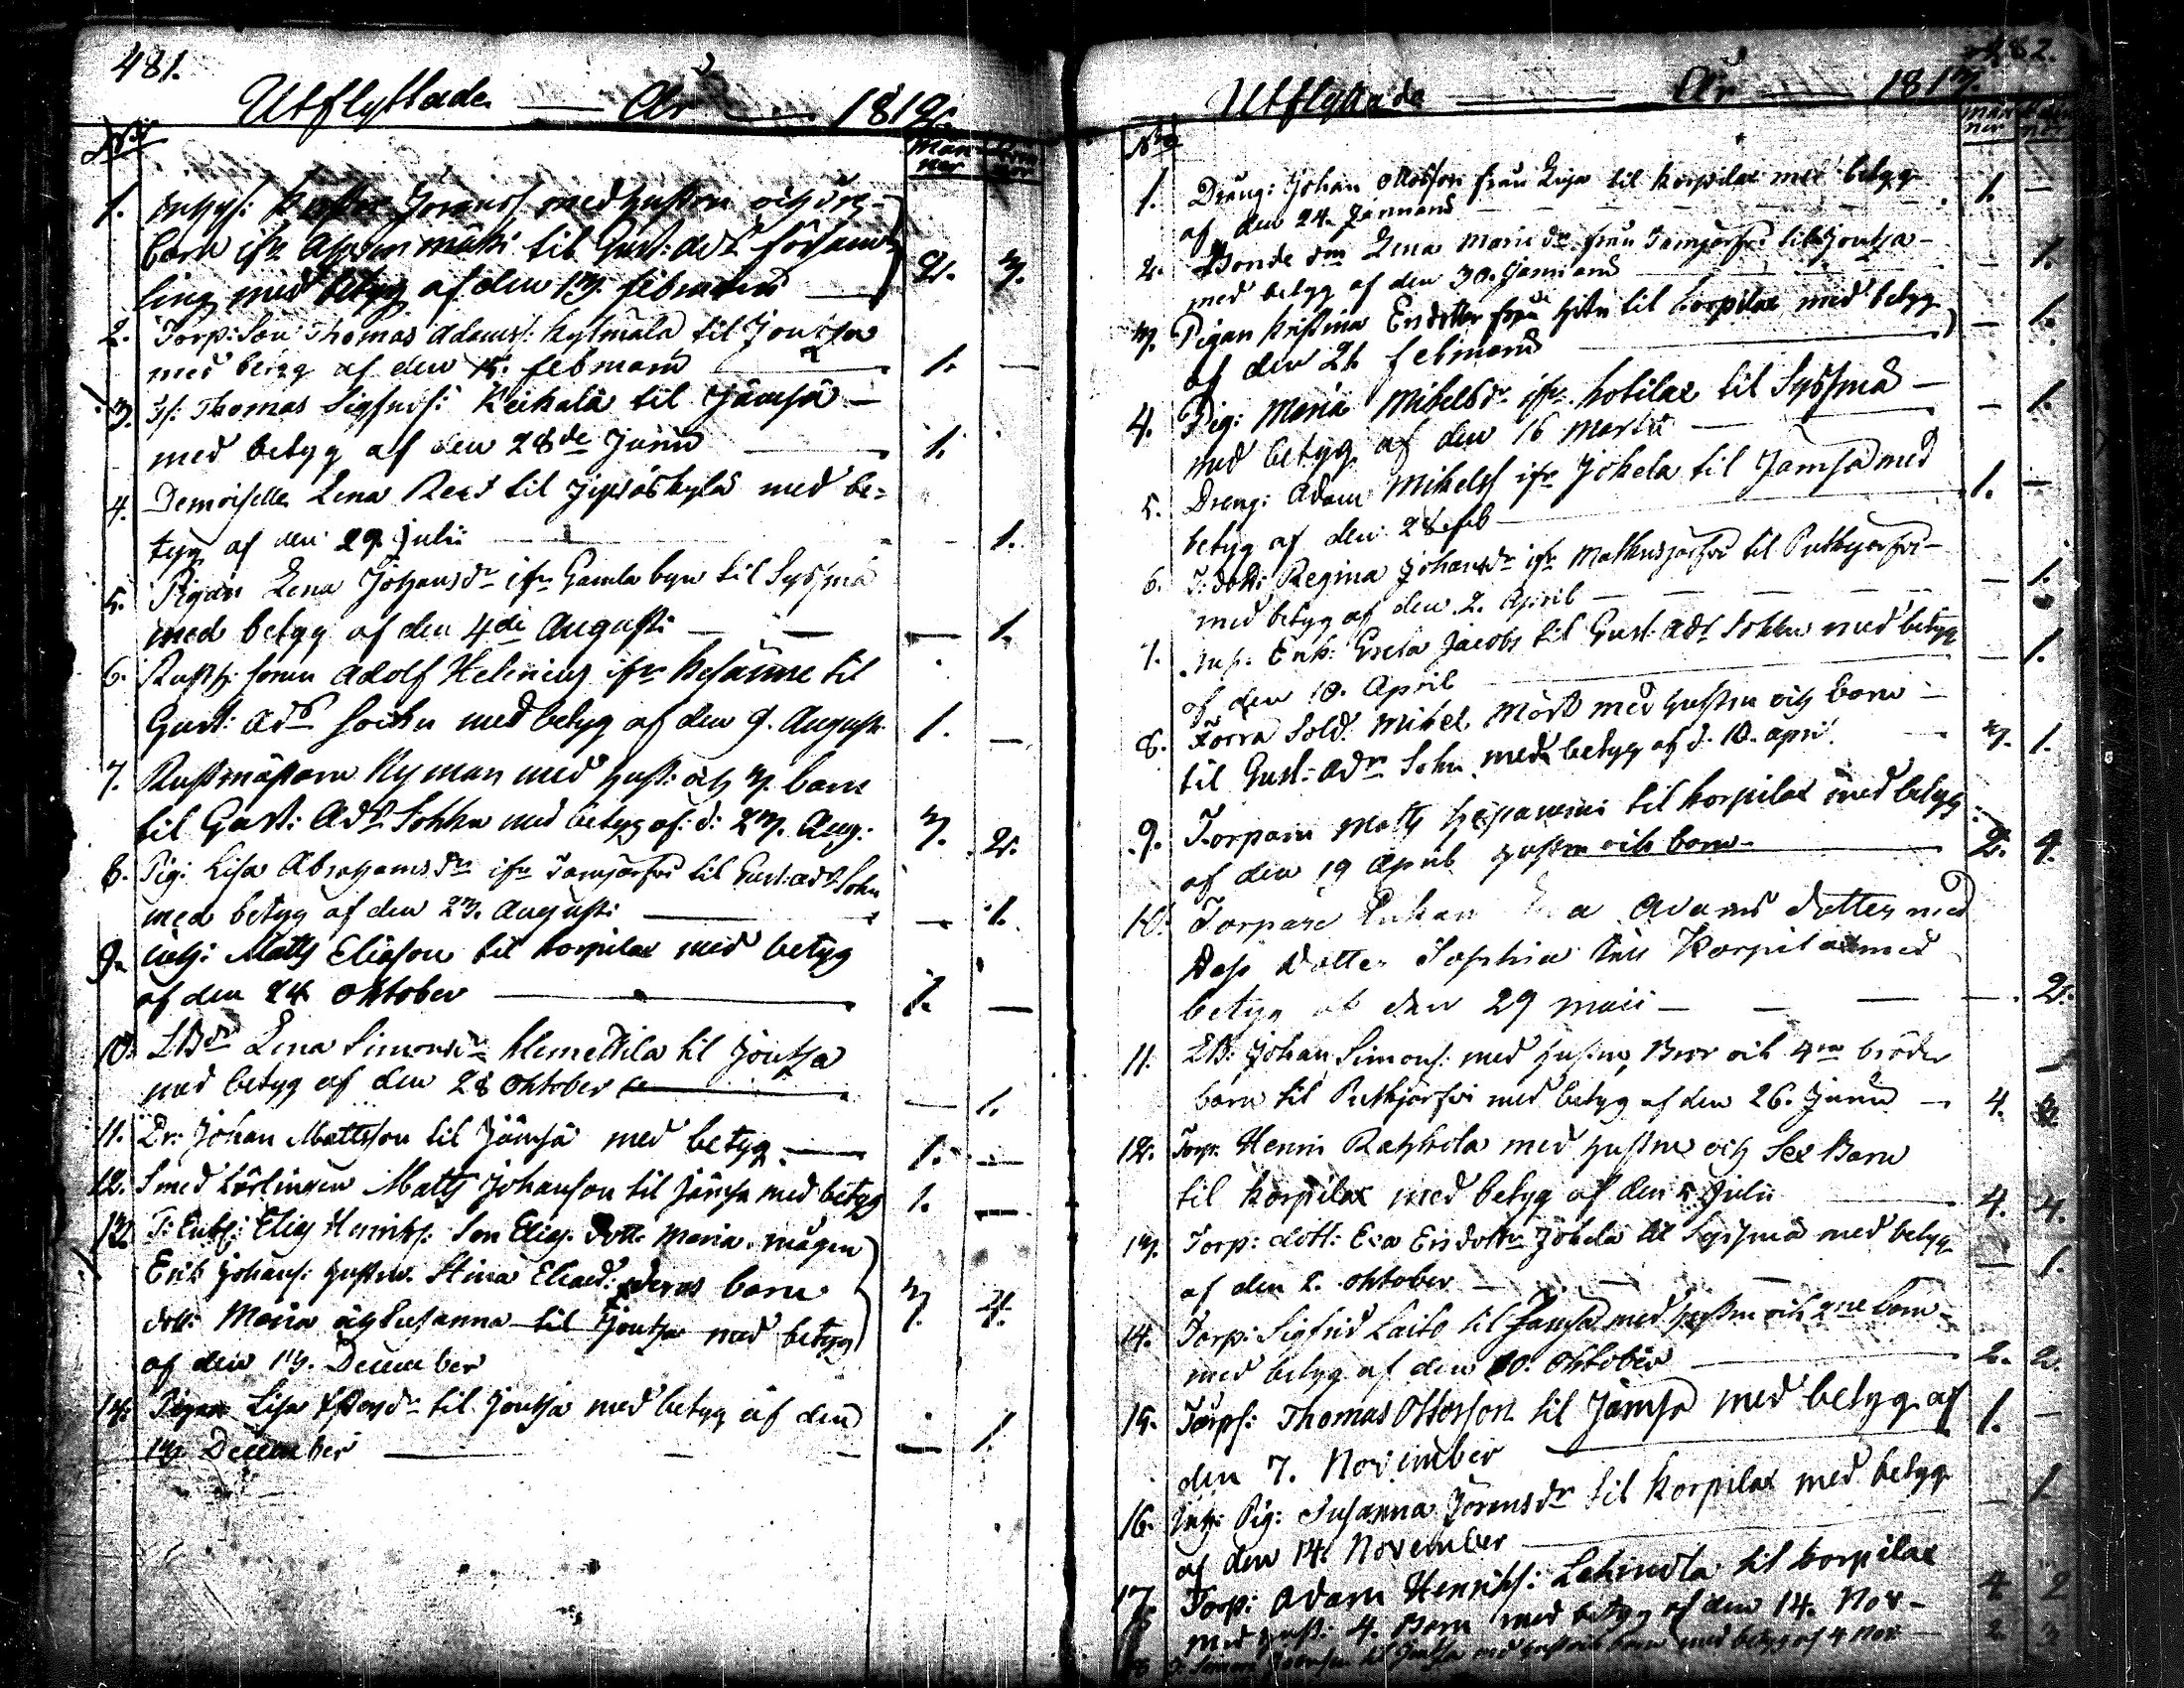 481.
Utflyttade År 1812.
No
Man ner
Qvin nor
1. Inhys: Jöranss med hustru och
barn ifr til Gust: Ad: försam
ling med betyg af den 13. februarii 2. 3.
2. Torp: Son Thomas Adamss: Kylmälä til Joutsa
med betyg af den 15. februarii 1. —
3. Thomas Sigfridss: Keihälä til Jämsä
med betyg af den 28de Junii 1.
4. Demoiselle Lena Reet til Jyväskylä med be=
tyg af den 29. Julii 1.
5. Pigan Lena Johansdr ifr Gamla byn til Sysmä
med betyg af den 4de Augusti — 1.
6. Sonen Adolf Helenius ifr til
Gust: Ads Sockn med betyg af den 9. August: 1. —
7. Rustmästarn Nyman med hust: och 3. barn
til Gust: Ads Sokkn med betyg af: d: 23. Aug: 3. 2.
8. Pig: Lisa Abrahamsdr ifr Tamjärfvi til Gust: Ads Sokn
med betyg af den 23. Augusti — 1.
9. Inh: Matts Eliasson til Korpilax med betyg
af den 24 Oktober 1. —
10. LBdr Lena Simonsdr Klemettilä til Joutsa
med betyg af den 28 Oktober — 1.
11. Dr: Johan Mattsson til Jämsä med betyg 1. —
12. Smed Lärlingen Matts Johansson til Jämsä med betyg 1. —
13. Elias Henrikss: Son Elias. Dott: Maria. mågen
Erik Johanss: hustrun Stina Eliaed: deras barn
dott: Maria och Susanna til Joutsa med betyg 3. 4.
af den 13. December
14. Pigan Lisa til Joutsa med betyg af den
13 December — 1.
482.
Utflyttade År 1813.
No
Män ner
Qvin nor
1. Dräng: Johan Ottosson från til Korpilax med betyg
af den 24. Januarii 1. —
2. Bonde drn Lena Mariedr från Tamjärfvi til Joutsa
med betyg af den 30. Januarii — 1.
3. Pigan Kristina Ersdotter från til Korpilax med betyg
af den 21 februarii — 1.
4. Pig: Maria Mikelsdr ifr til Sysmä
med betyg af den 16 Martii — 1.
5. Dreng: Adam Mikelss ifr Jokela til Jämsä med
betyg af den 28. feb 1. —
6. T: dott: Regina Johansdr ifr til Putkijärfvi
med betyg af den 2. April — 1.
7. Enk: Greta Jacobs til Gust: Ads Sokkn med betyg
af den 10. April — 1.
8. Förra Sold: Mikel Mört med hustru och barn
til Gust: Ads Sokn med betyg af d. 10. april 3. 1.
9. Torparn Matts til Korpilax med betyg
af den 19 April hustru och barn 2. 4.
10. Torpare Enkan Adams dotter med
dess dotter Sophia till Korpilax med
betyg af den 29 maii — 2.
11. LB: Johan Simonss: med hustru, Bror och 4ra bröder
barn til Putkijärfvi med betyg af den 26. Junii 4.
12. Torp: Henric med hustru och Sex Barn
til Korpilax med betyg af den 5 Julii 4. 4.
13. Torp: dott: Eva Ersdotter Jokela til Sysmä med betyg
af den 2. Oktober — 1.
14. Torp: Sigfrid Laito til Jämsä med hustru och 2ne barn
med betyg af den 20. Oktober 2. 2.
15. Torps: Thomas Ottosson til Jämsä med betyg af
den 7. November 1. —
16. Inh: Pig: Susanna Göransdr til Korpilax med betyg
af den 14. November — 1
17. Torp: Adam Henrikss: til Korpilax
med hust: 4. Barn med betyg af den 14. Nov 4 2
18. Simon til Joutsa med hustru och barn med betyg af 4 Nov 2. 3